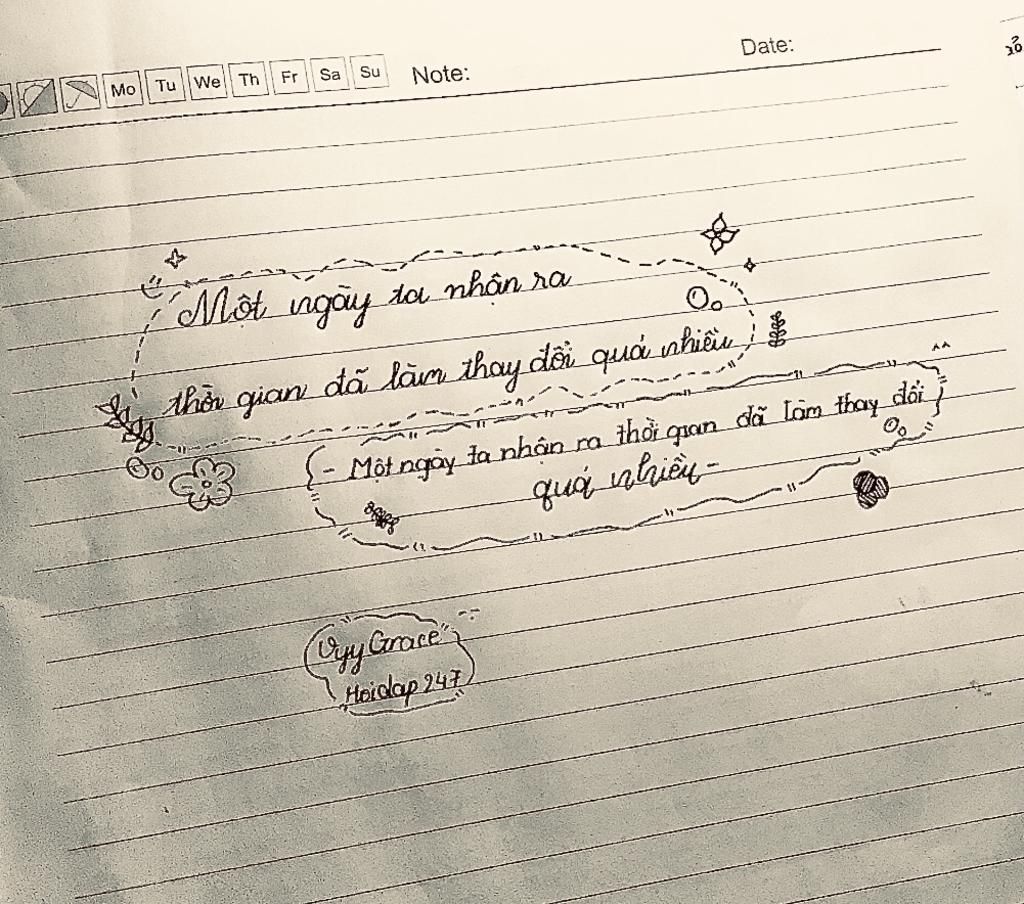 Mo Tu We Th Fr Sa Su Note: Date:
Một ngày ta nhận ra
thời gian đã làm thay đổi quá nhiều
- Một ngày ta nhận ra thời gian đã làm thay đổi
quá nhiều -
Vyy Grace
Hoidap 247